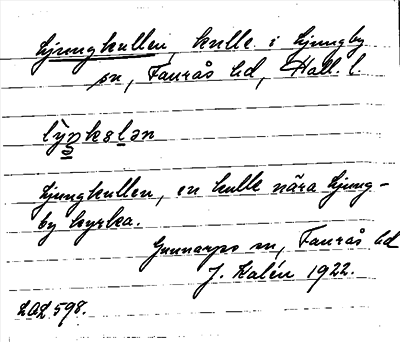 Ljungkullen, kulle i Ljungby
sn, Faurås hd, Hall. l.
Ljungkullen, en kulle nära Ljung-
by kyrka.
Gunnarps sn, Faurås hd
J. Kalén 1922.
598.